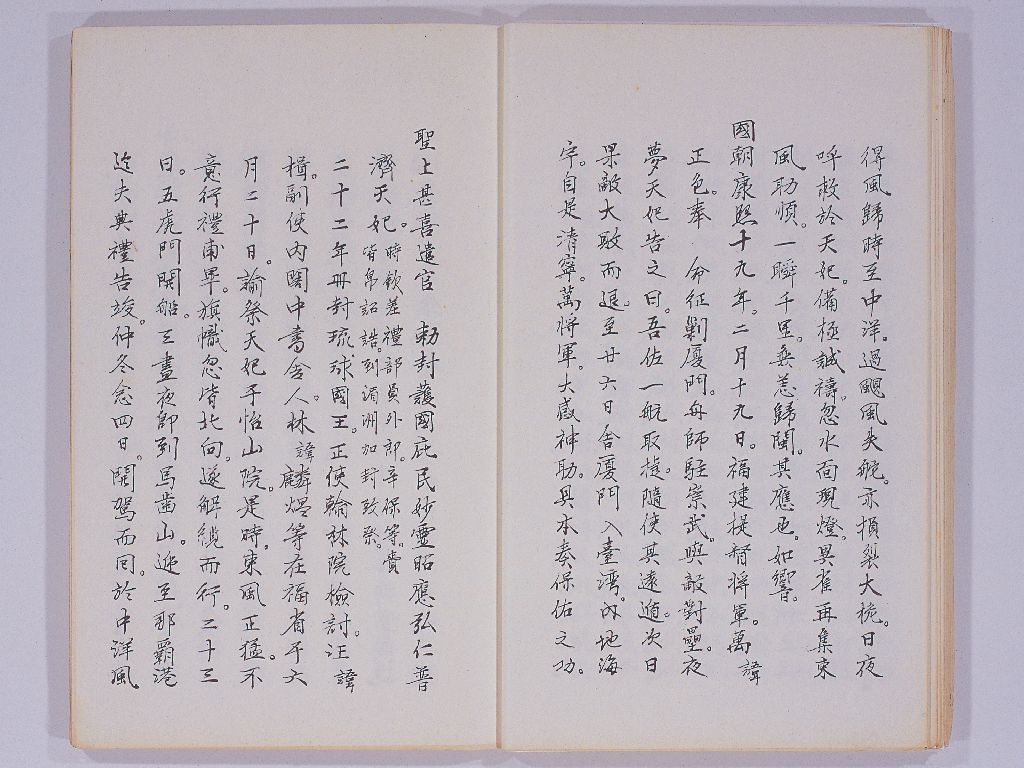 得風歸時至中洋。過颶風失舵。亦損裂大桅。日夜
呼救於天妃。備極誠禱。忽水面現燈。異雀再集東
風助順。一瞬千里。無恙歸閩。其應也。如響。
國朝康熙十九年。二月十九日。福建提督將軍。萬諱
正色奉 命征剿厦門。舟師駐崇武。與敵對壘。夜
夢天妃告之曰。吾佐一帆取捷。隨使其遠遁。次日
果敵大敗而退。至廿六日舍厦門入臺灣。內地海
宇。自是清寧。萬將軍。大感神助。具本奏保佑之功。
聖上甚喜遣官 勅封護國庇民妙靈昭應弘仁普
濟天妃。時欽差禮部員外郎。辛保等賫
皆帛詔誥到湄洲加封致祭。
二十二年冊封琉球國王。正使翰林院檢討。汪諱
楫。副使內閣中書舍人。林諱麟焻等在福省于六
月二十日。諭祭天妃于怡山院。是時。東風正猛。不
意行禮甫畢。旗幟忽皆北向。遂解纜而行。二十三
日。五虎門開船。三晝夜即到馬齒山。迎至那霸港
迨夫典禮告竣。仲冬念四日。開駕而回。於中洋風